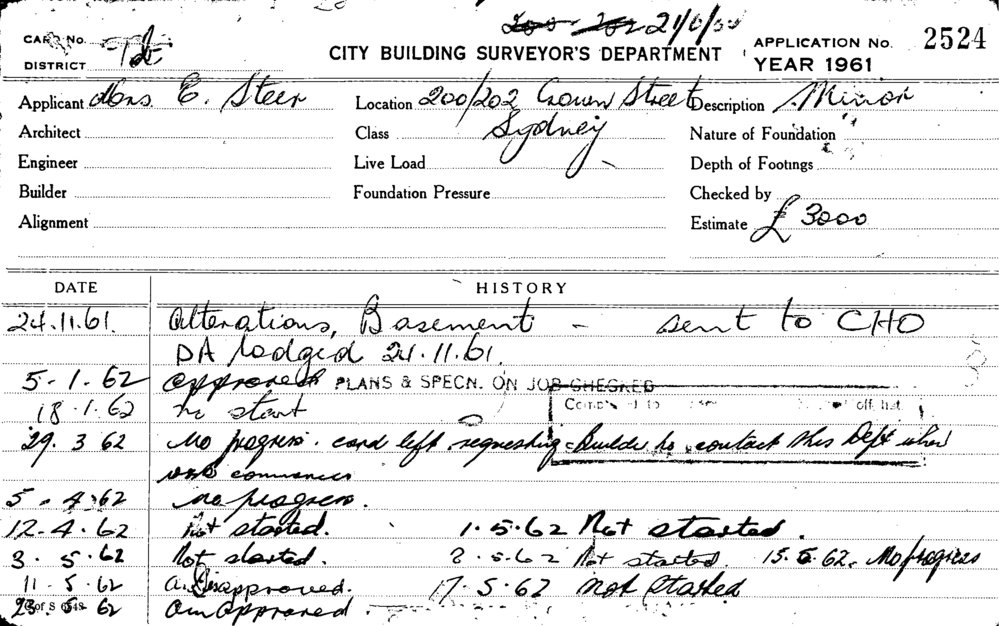 CARD No.
DISTRICT
CITY BUILDING SURVEYOR'S DEPARTMENT
APPLICATION No. 2524
YEAR 1961
Applicant Mrs. E. Steer
Location 200/202 Crown Street
Sydney
Description Minor
Architect
Class
Nature of Foundation
Engineer
Live Load
Depth of Footings
Builder
Foundation Pressure
Checked by
Alignment
Estimate £ 3000
DATE HISTORY
24.11.61. Alterations, Basement - sent to CHO
DA lodged 24.11.61.
5-1.62 approved PLANS & SPECN. ON JOB CHECKED
18.1.62 no start
off list
29.3 62 No progress. card left requesting Builder to contact this Dept when
work commences
5.4.62 no progress.
12.4.62 Not started. 1.5.62 Not started.
3.5.62 Not started. 8.5.62 Not started. 15.5.62. No progress
11.5.62 Disapproved. 17.5.62 not started
23.5.62 Am Approved.